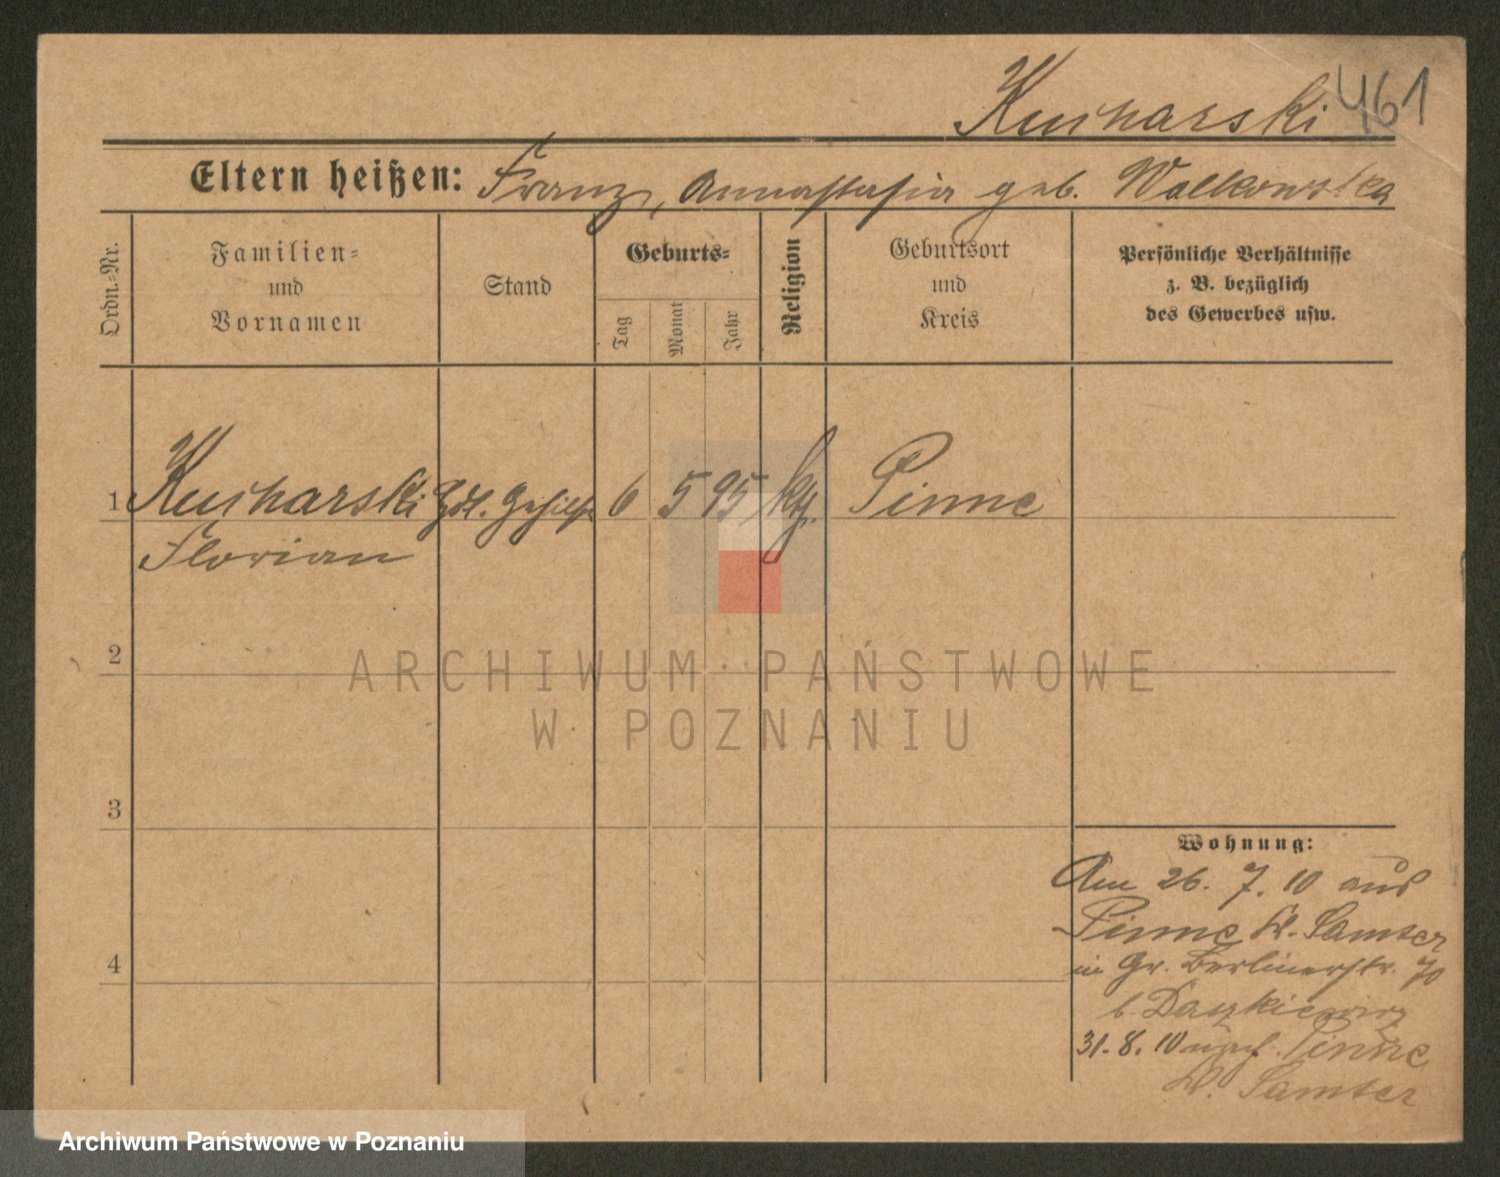 Kucharski 461
Eltern heißen: Franz, Annastasia geb. Walkowska
Ordn.-Nr.
Familien-
und
Vornamen
Stand
Geburts-
Tag
Monat
Jahr
Religion
Geburtsort
und
Kreis
Persönliche Verhältnisse
z. B. bezüglich
des Gewerbes usw.
1 Kucharski Hdl. Gehilfe 6 5 95 kth. Pinne
Florian
2
ARCHIWUM PAŃSTWOWE
W POZNANIU
3
Wohnung:
Am 26. 7. 10 aus
Pinne Kr. Samter
in Gr. Berlinerstr. 70
b. Daszkiewicz
4
31. 8. 10 nach Pinne
Kr. Samter
Archiwum Państwowe w Poznaniu